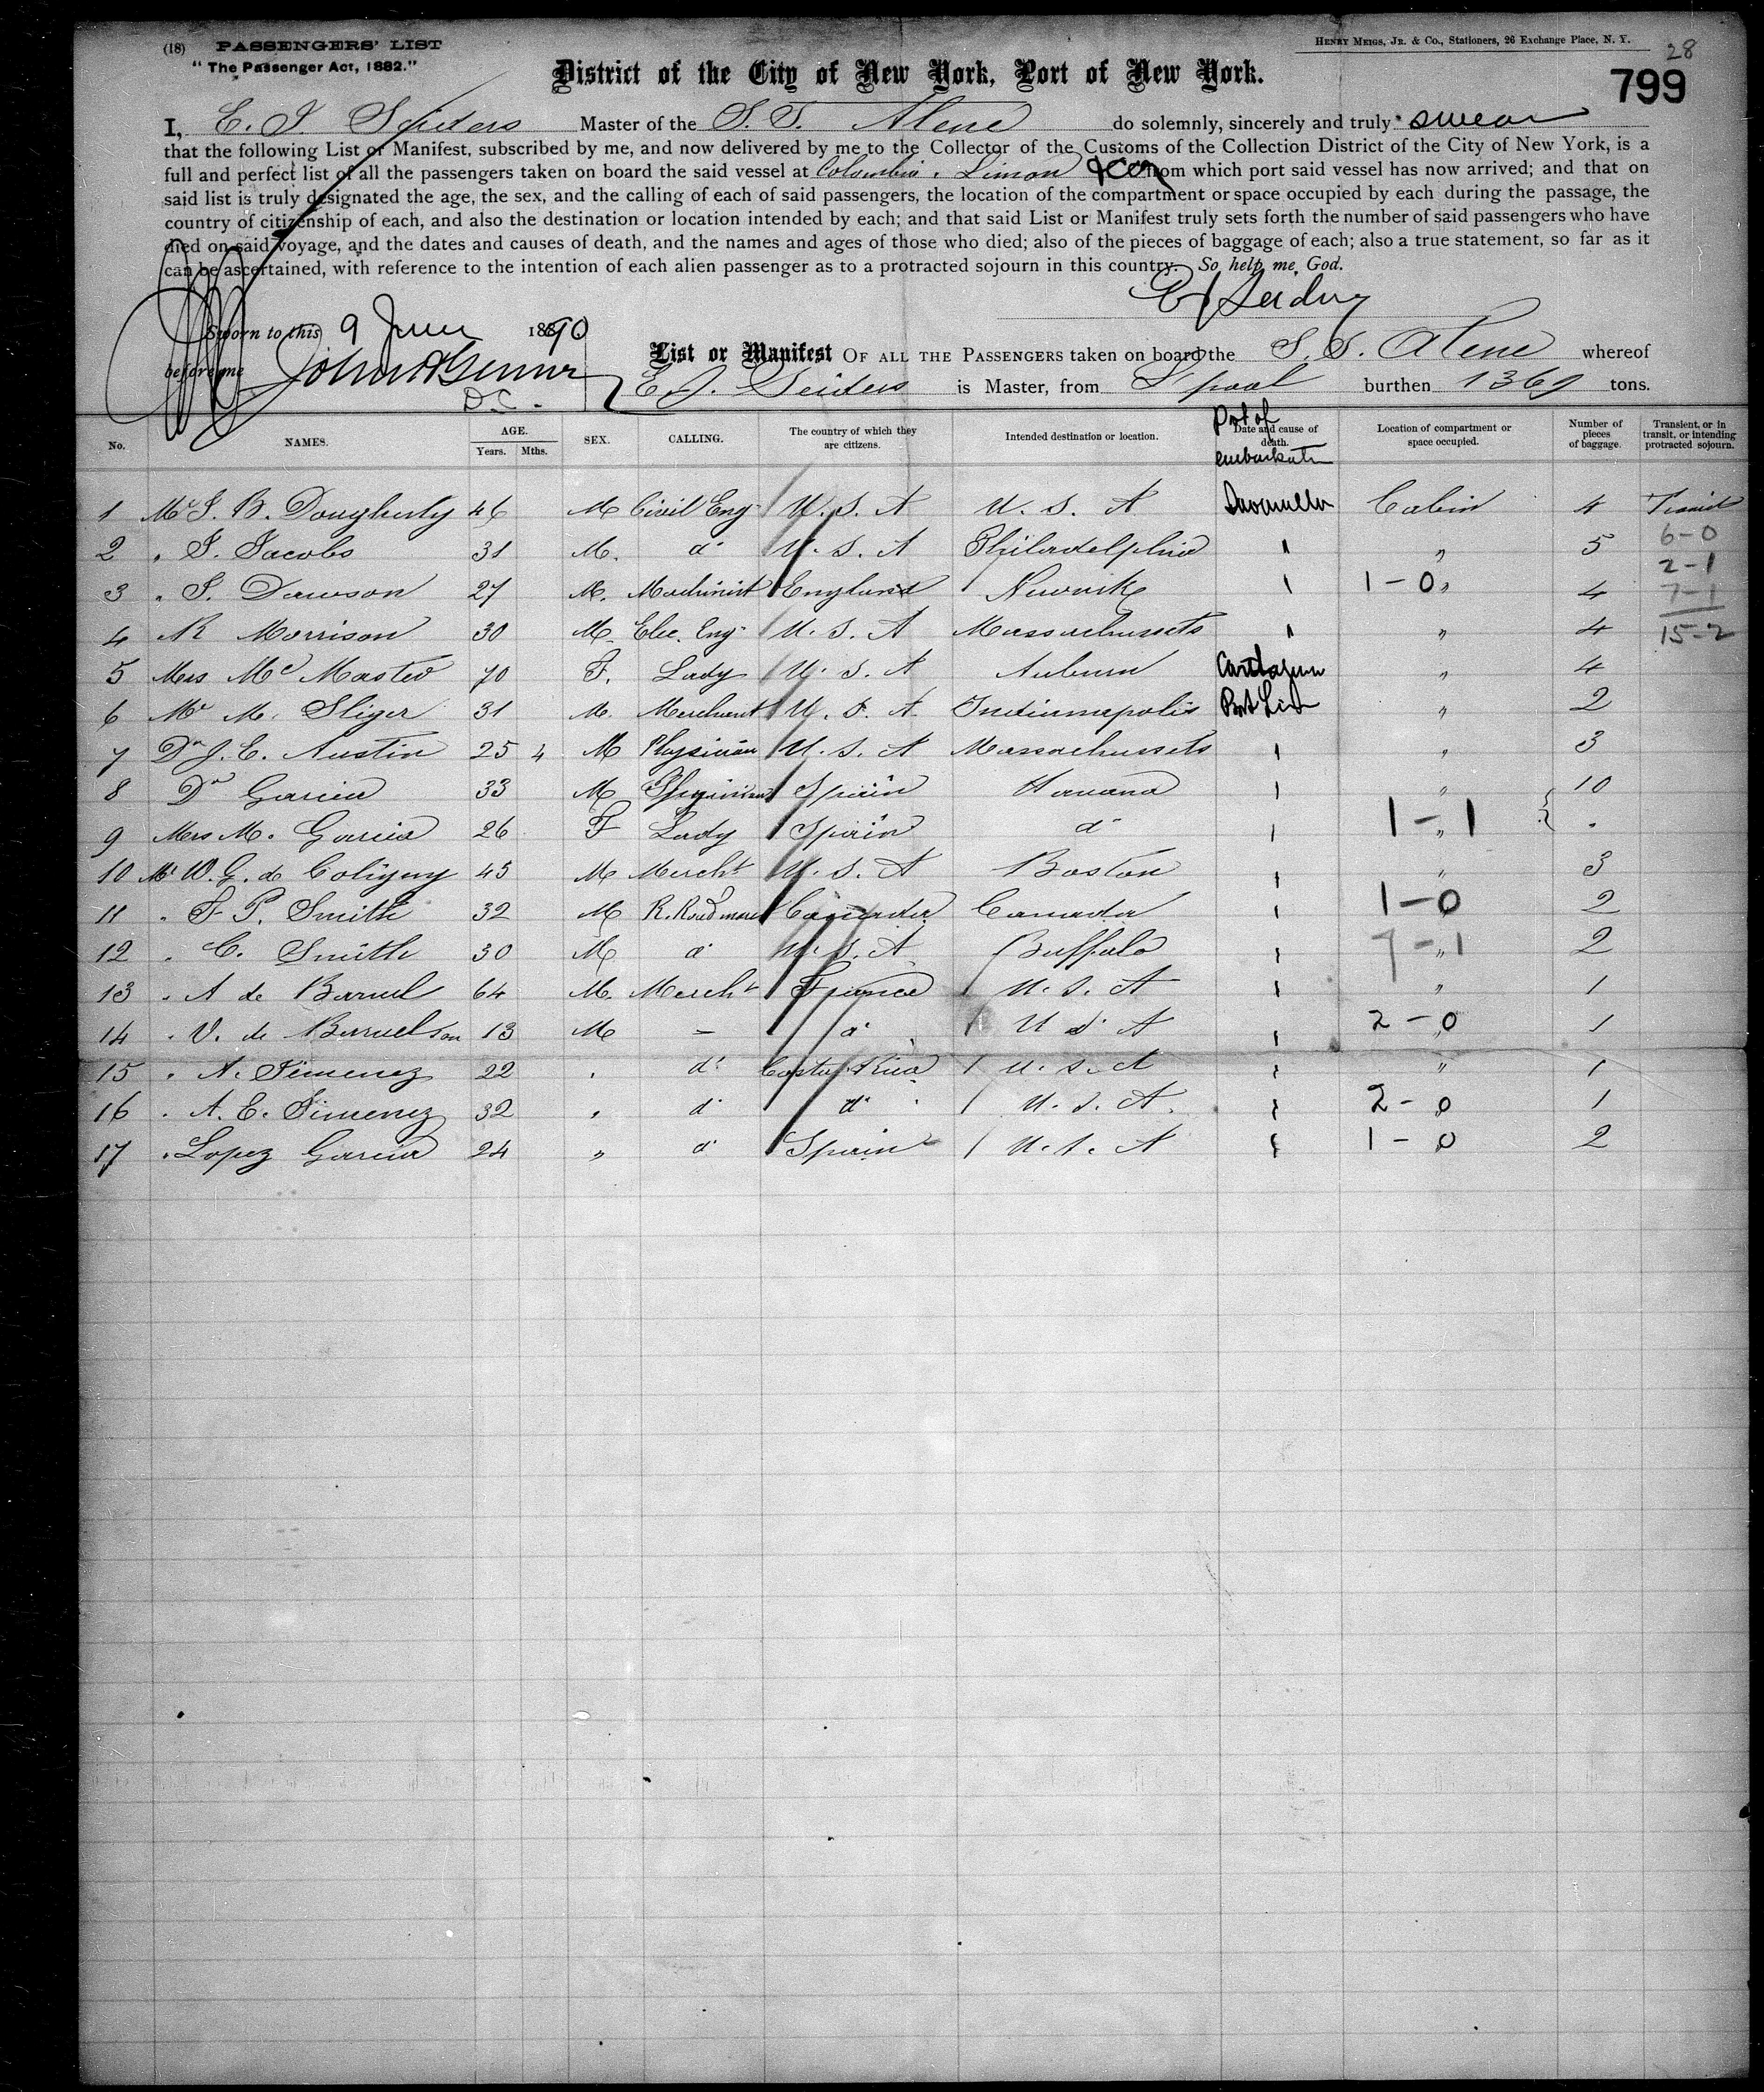 (18) PASSENGERS' LIST
"The Passenger Act, 1882."
HENRY MEIGS, JR. & CO., Stationers, 26 Exchange Place, N. Y.
28
799
District of the City of New York, Port of New York.
I, E. J. Seiders Master of the S.S. Alene do solemnly, sincerely and truly swear
that the following List or Manifest, subscribed by me, and now delivered by me to the Collector of the Customs of the Collection District of the City of New York, is a
full and perfect list of all the passengers taken on board the said vessel at Colombia, Limon from which port said vessel has now arrived; and that on
said list is truly designated the age, the sex, and the calling of each of said passengers, the location of the compartment or space occupied by each during the passage, the
country of citizenship of each, and also the destination or location intended by each; and that said List or Manifest truly sets forth the number of said passengers who have
died on said voyage, and the dates and causes of death, and the names and ages of those who died; also of the pieces of baggage of each; also a true statement, so far as it
can be ascertained, with reference to the intention of each alien passenger as to a protracted sojourn in this country. So help me, God.
E J Seiders
Sworn to this 9 June 1890
before me
D.C.
List or Manifest OF ALL THE PASSENGERS taken on board the S.S. Alene whereof
E J. Seiders is Master, from L'pool burthen 1369 tons.
No. NAMES. AGE. Years. Mths. SEX. CALLING. The country of which they are citizens. Intended destination or location. Date and cause of death. Port of embarkatn Location of compartment or space occupied. Number of pieces of baggage. Transient, or in transit, or intending protracted sojourn.
1 Mr J. B. Dougherty 46 M Civil Eng U. S. A U. S. A Savanilla Cabin 4 Transit
2 " J. Jacobs 31 M. do U. S. A Philadelphia " " 5 6-0
2-1
3 " J. Dawson 27 M. Machinist England Newark " 1-0 " 4 7-1
4 R Morrison 30 M. Elec. Eng U. S. A Massachussets " " 4 15-2
5 Mrs Mc Master 70 F. Lady U. S. A Auburn Carthagena " 4
6 Mr M. Sliger 31 M. Merchant U. S. A Indianapolis Port Lim " 2
7 Dr J. E. Austin 25 4 M Physician U. S. A Massachussets " " 3
8 Dr Garcia 33 M Physician Spain Havana " " 10
9 Mrs M. Garcia 26 F Lady Spain do " 1-1 "
10 Mr W. G. de Coligny 45 M Mercht U. S. A Boston " " 3
11 " F P. Smith 32 M R. Road man Canada Canada " 1-0 2
12 " C. Smith 30 M do U. S. A Buffalo " 7-1 " 2
13 " A de Barul 64 M. Mercht France 1 U. S. A " " 1
14 " V. de Barruel Son 13 M - do 1 U S A " 2-0 " 1
15 " A. Jimenez 22 " do Costa Rica 1 U. S. A " " 1
16 " A. E. Jimenez 32 " do do 1 U. S. A. " 2-0 " 1
17 " Lopez Garcia 24 " do Spain 1 U. S. A " 1-0 " 2